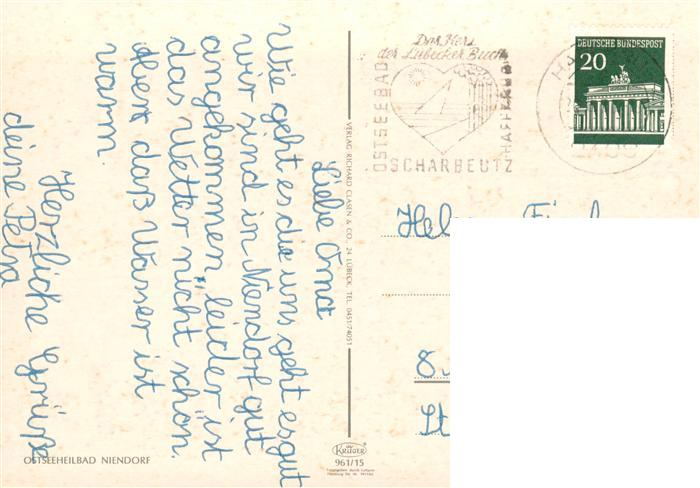 Liebe Oma
Wie geht es die uns geht es gut
wir sind in Niendorf gut
angekommen, leider ist
das Wetter nicht schön.
aber daß Wasser ist
warm.
Herzliche Grüße
deine Petra
OSTSEEHEILBAD NIENDORF
VERLAG RICHARD CLASEN & CO. 24 LÜBECK, TEL. 0451/74051
KRÜGER
961/15
Das Herz
der Lübecker Bucht
OSTSEEBAD
HAFFKRUG
SCHARBEUTZ
DEUTSCHE BUNDESPOST
20